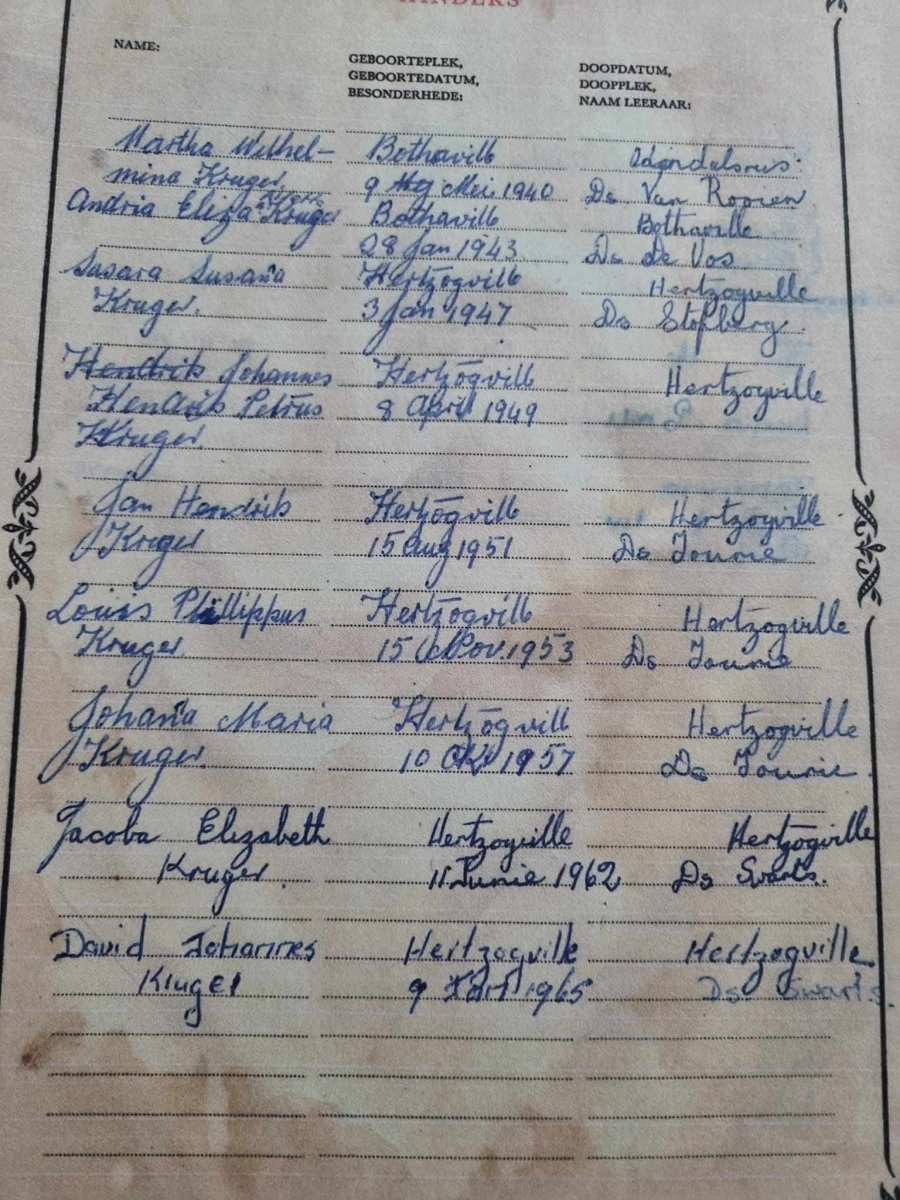 KINDERS
NAME:
GEBOORTEPLEK,
GEBOORTEDATUM,
BESONDERHEDE:
DOOPDATUM,
DOOPPLEK,
NAAM LEERAAR:
Martha Wilhel- Bothaville
mina Kruger 9 Mei 1940 Ds Van Rooien
Andria Eliza Kruger Bothaville Bothaville
28 Jan 1943 Ds De Vos
Susara Susana Hertzogville Hertzogville
Kruger. 3 Jan 1947 Ds Stofberg
Hendrik Johannes Hertzogville Hertzogville
Hendris Petrus 8 April 1949
Kruger
Jan Hendrik Hertzogville Hertzogville
Kruger 15 Aug 1951 Ds Jourie
Louis Phillippus Hertzogville Hertzogville
Kruger 15 Nov. 1953 Ds Jourie
Johana Maria Hertzogville Hertzogville
Kruger. 10 Okt 1957 Ds Jourie.
Jacoba Elizabeth Hertzogville Hertzogville
Kruger. 11 Junie 1962 Ds Swarts.
David Johannes Hertzogville Hertzogville
Kruger 9 1965 Ds Swarts.